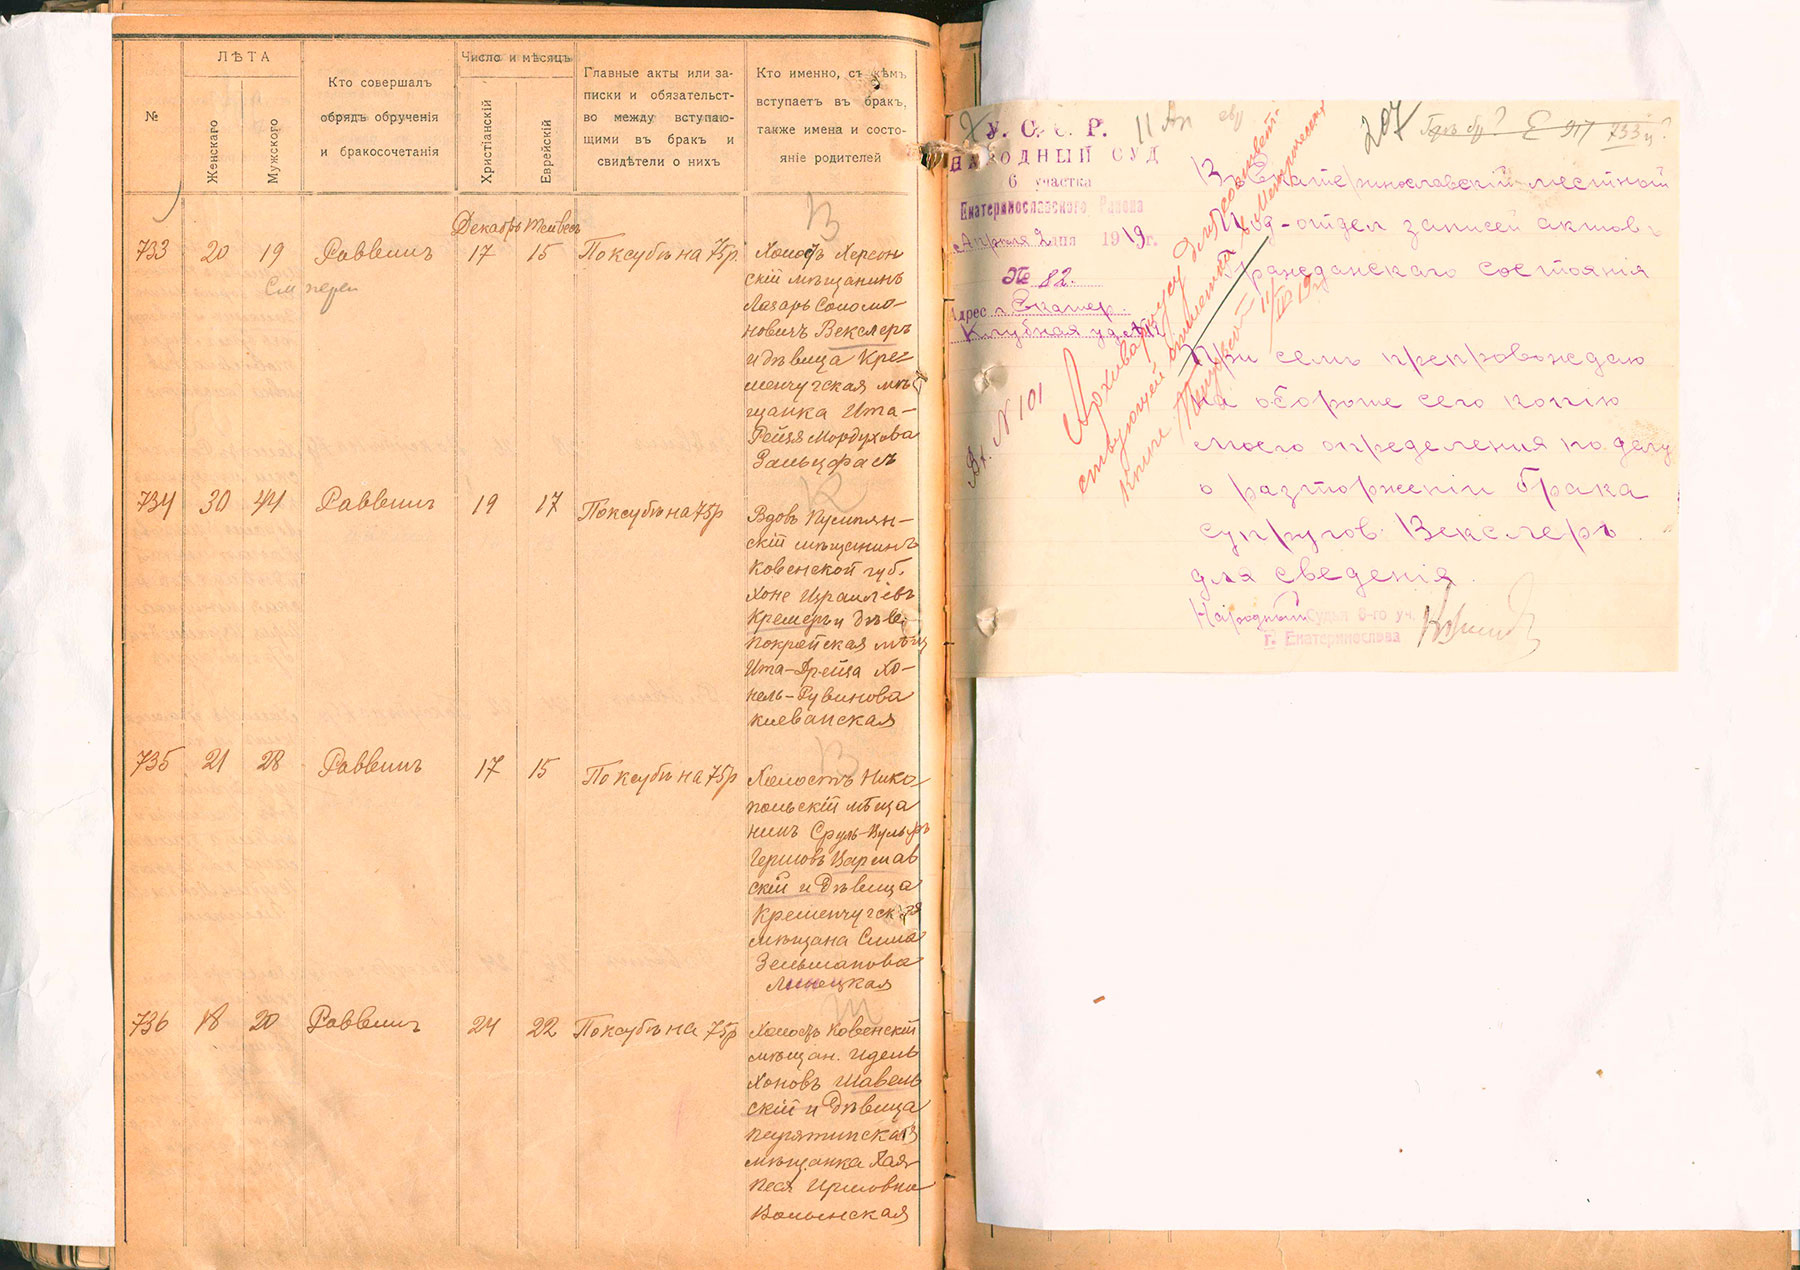 №
ЛѢТА
Женскаго
Мужского
Кто совершалъ
обрядъ обрученія
и бракосочетанія
Число и мѣсяцъ
Христіанскій
Еврейскій
Главные акты или за-
писки и обязательст-
во между вступаю-
щими въ бракъ и
свидѣтели о нихъ
Кто именно, съ кѣмъ
вступаетъ въ бракъ,
также имена и состо-
яніе родителей
Декабрь Тейвесъ
В
733 20 19 Раввинъ 17 15 По ксубѣ на 75 р.
См
Холостъ Херсон
скій мѣщанинъ
Лазарь Соломо-
новичъ Векслеръ
и дѣвица Кре-
менчугская мѣ
щанка Ита-
Рейзя Мордухова
Зальцфасъ
К
734 30 44 Раввинъ 19 17 По ксубѣ на 75 р
Вдовъ Кумпян-
скій мѣщанинъ
Ковенской губ.
Хоне Израилевъ
Кремеръ и дѣв.
Покройская мѣщ
Ита-Фрейда Хо-
нель-Рувинова
Киеванская
В
735 21 28 Раввинъ 17 15 По ксубѣ на 75 р
Холостъ Нико
польскій мѣща
нинъ Сруль-Вульфъ
Гершовъ Варшав
скій и дѣвица
Кременчугская
мѣщана Сима
Зельманова
Линецкая
Ш
736 18 20 Раввинъ 24 22 По ксубѣ на 75 р
Холостъ Ковенскій
мѣщан. Идель
Хоновъ Шавель
скій и дѣвица
Пирятинская
мѣщанка Хая-
Песя Иршовна
Волынская
У. С. С. Р.
НАРОДНЫЙ СУД
6 участка
Екатеринославского Района
Апреля 2 дня 1919 г.
№ 82.
Адрес г. Екатер.
Клубная ул.
Вх. N 101
11 Ап
207
Е 917 733
В Екатеринославский местный
Под-отдел записей актов
Гражданскаго состоянія
При сем препровождаю
на обороте сего копію
моего определения по делу
о разторженіи брака
супругов Векслеръ
для сведенія.
Народный Судья 6-го уч.
г. Екатеринослава
Архивариусу для соответ-
ствующей отметки в Метрической
книге